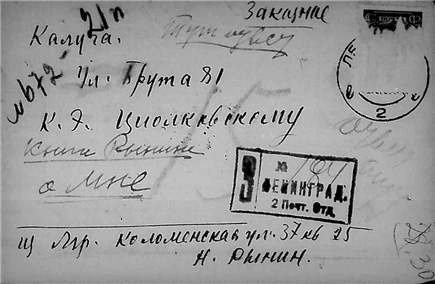 Заказное
21п
Калуга. Тут ответ
№672
Ул. Брута 81
К. Э. Циолковскому
Книги Рынина
о мне
З № 104
ЛЕНИНГРАД.
2 Почт. Отд.
ЛЕ
2
Лгр. Коломенская ул. 37 кв 25
Н. Рынин.
30